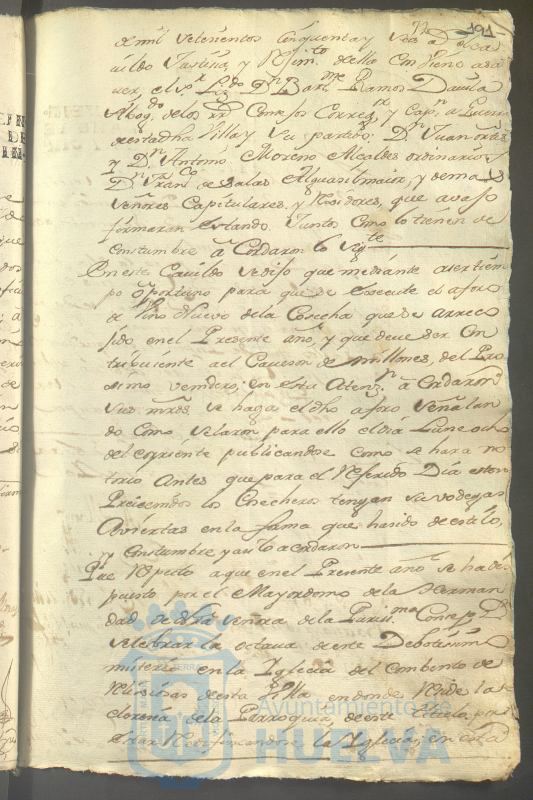 72 191
de mil setecientos cinquenta y seis a. el Ca
uildo Justicia, y Rexim.to della Conviene a sa
uer, el s.r Liz.do D.n Bar.me Ramos Dauila
Abog.do de los R.s Consejos Correg.or y Cap.n a Guerra
de esta dha Villa y su partido: D.n Juan
y D.n Antonio Moreno Alcaldes ordinarios
D.n Fran.co de Salas Alguasil maior, y demas
señores Capitulares, y Rexidores, que auajo
firmaron estando Juntos Como lo tienen de
Constumbre aCordaron lo sig.te
En este Cauildo se dijo que mediante a ser tiem
po oportuno para que se execute el aforo
de Vino Nuevo de la Cosecha que se a rreco
jido en el Presente año, y que deue ser Con
tribuiente a el Caueson de Millones, del Pro
simo venidero; en esta Atenz.n aCordaron
sus mrds. se haga el dho aforo señalan
do Como señalaron para ello el dia Lunes ocho
del corriente publicandose Como se hara no
torio Antes que para el Referido Dia esten
los Cosecheros tengan sus vodegas
Aviertas en la forma que ha sido de estilo,
y Constumbre y asi lo acordaron
Que Respecto a que en el Presente año se ha dis
puesto por el Mayordomo de la Herman
dad de dha señora de la Puris.ma Consep.on
selebrar la octaua de este Debotisimo
misterio en la Iglecia del Combento de
Religiosas de esta Villa en donde Recide la
cleresia de la Parroquia, de este titulo, por
estar Reedificandose la Iglecia; en esta
Ayuntamiento de
HUELVA